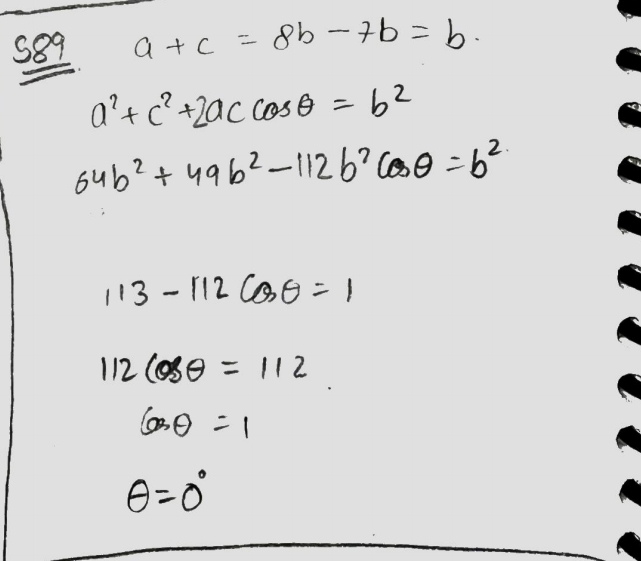 S89 a + c = 8b - 7b = b.
a² + c² + 2ac cosθ = b²
64b² + 49b² - 112b² Cosθ = b².
113 - 112 Cosθ = 1
112 Cosθ = 112.
Cosθ = 1
θ = 0°